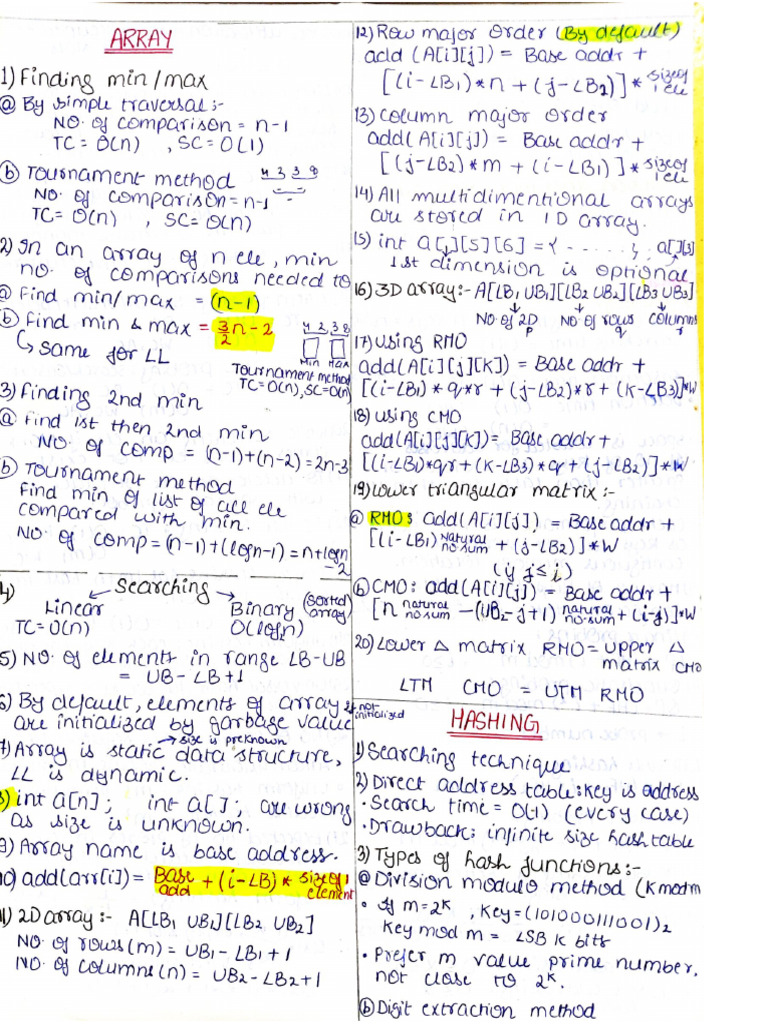 ARRAY
1) Finding min/max
ⓐ By simple traversal:-
No. of comparison = n-1
TC = O(n) , SC = O(1)
ⓑ Tournament method 4 2 3 8
No. of comparison = n-1
TC = O(n) , SC = O(n)
2) In an array of n ele, min
no. of comparisons needed to
ⓐ Find min/max = (n-1)
ⓑ Find min & max = 3/2 n - 2
↳ Same for LL
4 2 3 8
Min Max
Tournament method
TC = O(n), SC = O(n)
3) Finding 2nd min
ⓐ Find 1st then 2nd min
No. of comp = (n-1)+(n-2) = 2n-3
ⓑ Tournament method
Find min of list of all ele
compared with min.
No. of comp = (n-1)+(logn-1) = n+logn
-2
4) Searching
Linear Binary (sorted array)
TC = O(n) O(logn)
5) No. of elements in range LB-UB
= UB - LB + 1
6) By default, elements of array if not initialized
are initialized by garbage value
→ size is preknown
7) Array is static data structure,
LL is dynamic.
8) int a[n]; int a[]; are wrong
as size is unknown.
9) Array name is base address.
10) add(arr[i]) = Base add + (i-LB) * size of 1 element
11) 2D array :- A[LB1 UB1][LB2 UB2]
No. of rows(m) = UB1 - LB1 + 1
No. of columns(n) = UB2 - LB2 + 1
12) Row major order (By default)
add (A[i][j]) = Base addr +
[(i-LB1)*n + (j-LB2)] * size of 1 ele
13) Column major order
add(A[i][j]) = Base addr +
[(j-LB2)*m + (i-LB1)] * size of 1 ele
14) All multidimentional arrays
are stored in 1D array.
15) int a[][5][6] = { - - - - - }; a[][3]
1st dimension is optional
16) 3D array:- A[LB1 UB1][LB2 UB2][LB3 UB3]
No. of 2D No. of rows columns
p q r
17) Using RMO
add(A[i][j][k]) = Base addr +
[(i-LB1)*q*r + (j-LB2)*r + (k-LB3)]*W
18) Using CMO
add(A[i][j][k]) = Base addr +
[(i-LB1)*qr + (k-LB3)*q + (j-LB2)]*W
19) Lower triangular matrix :-
ⓐ RMO: add(A[i][j]) = Base addr +
[(i-LB1) Natural no sum + (j-LB2)]*W
(if j≤i)
ⓑ CMO: add(A[i][j]) = Base addr +
[n natural no sum - (UB2-j+1) natural no sum + (i-j)]*W
20) Lower △ matrix RMO = Upper △
matrix CMO
LTM CMO = UTM RMO
HASHING
1) Searching technique
2) Direct address table: Key is address
• Search time = O(1) (every case)
• Drawback: infinite size hash table
3) Types of hash functions:-
ⓐ Division modulo method (K mod m
• If m = 2^k , Key = (101000111001)2
Key mod m = LSB k bits
• Prefer m value prime number,
not close to 2^k.
ⓑ Digit extraction method